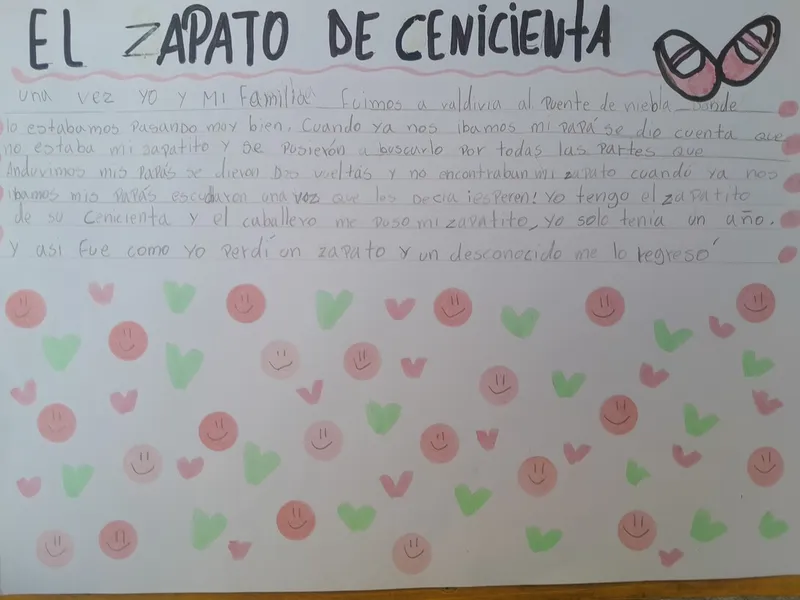 EL ZAPATO DE CENICIENTA
una vez yo y mi familia fuimos a valdivia al puente de niebla donde
lo estabamos pasando moy bien. Cuando ya nos ibamos mi papá se dio cuenta que
no estaba mi zapatito y se pusierón a buscarlo por todas las partes que
Anduvimos mis papás se dieron Dos vueltas y no encontraban mi zapato cuando ya nos
ibamos mis papás escucharon una voz que les decia ¡esperen! Yo tengo el zapatito
de su cenicienta y el caballero me puso mi zapatito, yo solo tenia un año.
Y asi fue como yo perdí un zapato y un desconocido me lo regreso